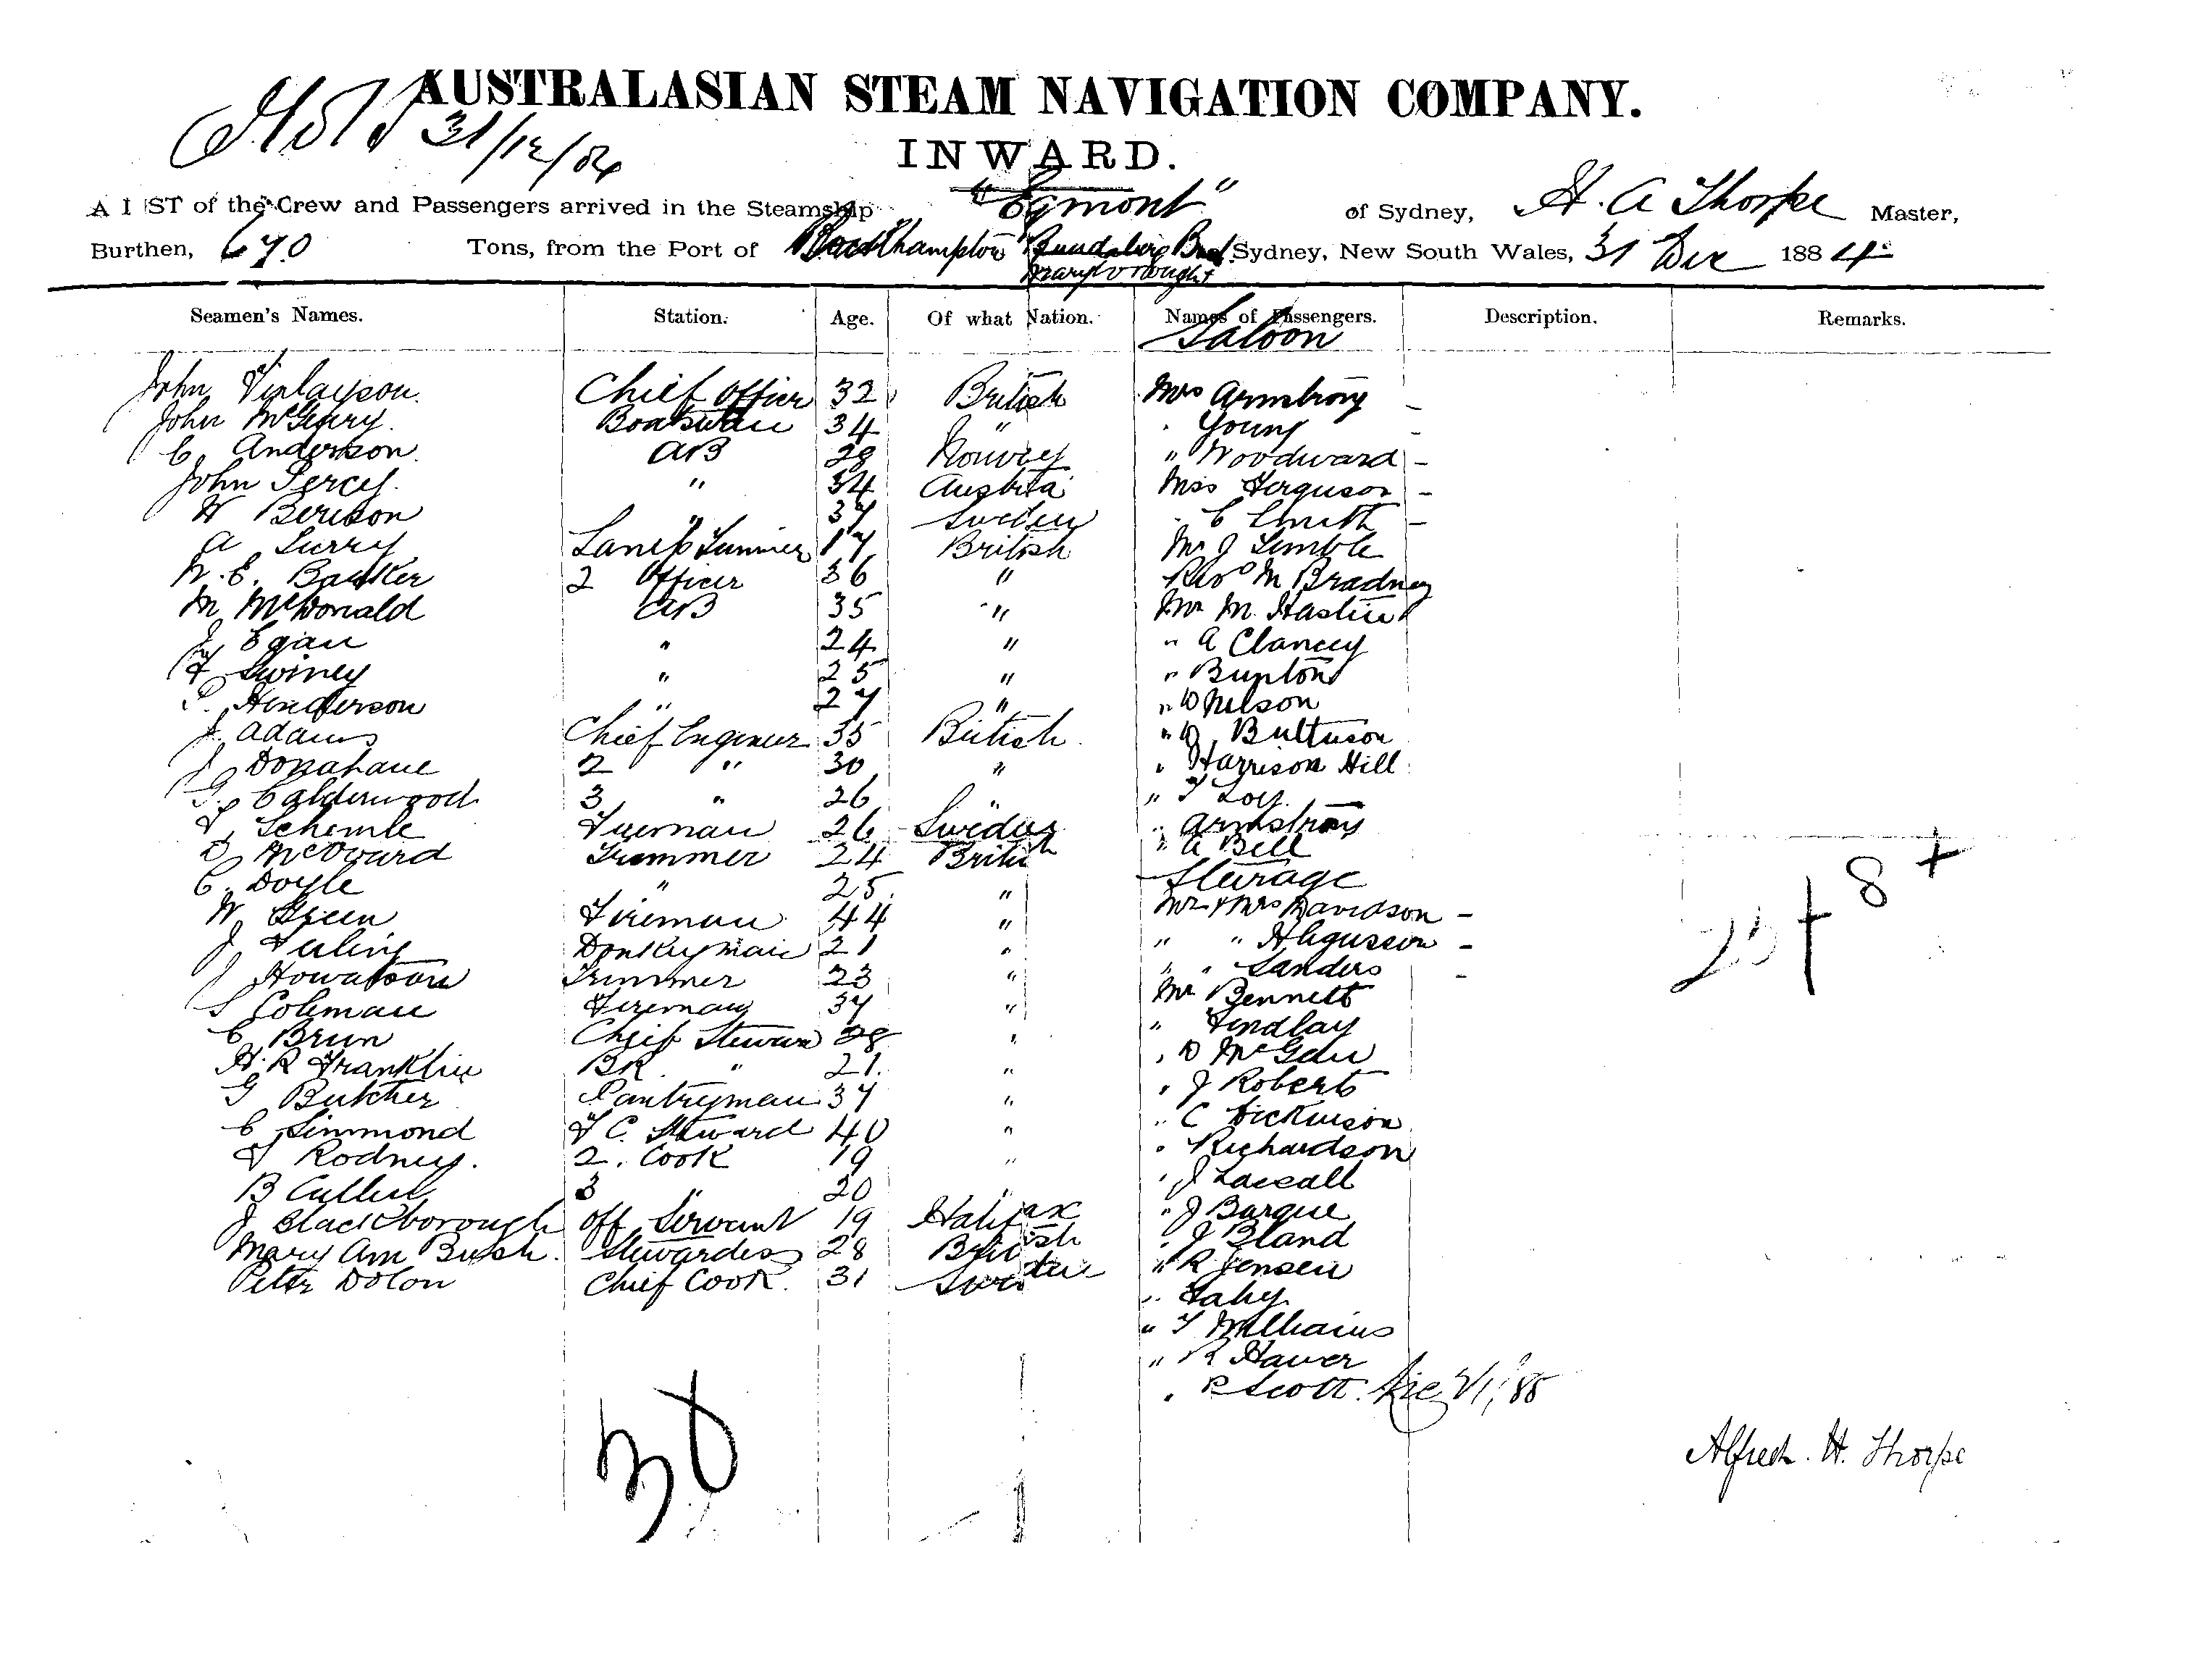 AUSTRALASIAN STEAM NAVIGATION COMPANY.
31/12/84
INWARD.
A LIST of the Crew and Passengers arrived in the Steamship "Egmont" of Sydney, H. A Thorpe Master,
Burthen, 670 Tons, from the Port of Rockhampton Bundaberg Sydney, New South Wales, 31 Dec 1884
Maryborough
Seamen's Names. Station. Age. Of what Nation. Names of Passengers. Description. Remarks.
Saloon
John Finlayson Chief Officer 32 British Mrs Armstrong -
John 34 " Young -
C. Anderson AB 28 Norway " Woodward -
John Percy " 34 Austria Miss Ferguson -
W " 37 Sweden " C Smith -
A 17 British Mr J
W. E. 2 Officer 36 " Revd M Bradney
M McDonald AB 35 " Mr M.
J Egan " 24 " " A Clancey
Swiney " 25 " "
Henderson " 27 " " D Nelson
J Adams Chief Engineer 35 British "
J 2 " 30 " " Harrison Hill
G. Calderwood 3 " 26 " "
Fireman 26 Sweden " Armstrong
Trimmer 24 British " A Bell
C. Doyle " 25 " Steerage
W Green Fireman 44 " Mr & Mrs Davidson -
J Donkeyman 21 " " " -
J Howatson Trimmer 23 " " " Sanders -
S Coleman Fireman 37 " Mr Bennett
C Brun Chief Steward 28 " " Findlay
H. R Franklin BK " 21. " " D
G Butcher Pantryman 37 " " J Roberts
C Simmond F C. Steward 40 " " C Dickinson
Rodney. 2. Cook 19 " " Richardson
B Cullen 3 " 20 " " J
J Blackborough Off Servant 19 Halifax " J Barque
Mary Ann Bush. Stewardess 28 British " J Bland
Peter Dolon Chief Cook. 31 Sweden " R Jensen
" Fahy
" T Williams
" R
" R Scott.
8 +
30
Alfred. H. Thorpe